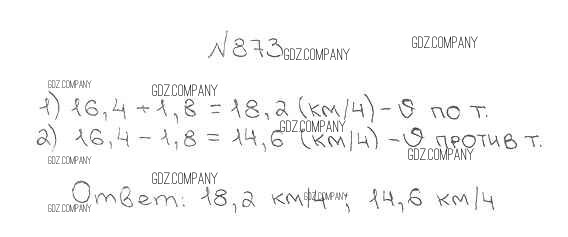 №873
GDZ.COMPANY GDZ.COMPANY
GDZ.COMPANY GDZ.COMPANY
1) 16,4 + 1,8 = 18,2 (км/ч) - υ по т.
GDZ.COMPANY
2) 16,4 - 1,8 = 14,6 (км/ч) - υ против т.
GDZ.COMPANY GDZ.COMPANY
GDZ.COMPANY
Ответ: 18,2 км/ч ; 14,6 км/ч
GDZ.COMPANY GDZ.COMPANY